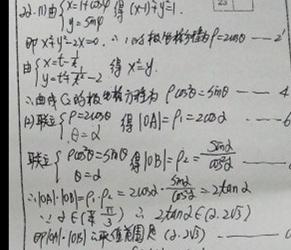 (1)由{x=1+cosφ y=sinφ 得 (x-1)²+y²=1.
即 x²+y²-2x=0. ∴ 的极坐标方程为 ρ=2cosθ —— 2'
由{x=t-1/t y=t²+1/t²-2 得 x²=y.
∴曲线C₂的极坐标方程为 ρcos²θ=sinθ —— 4
(2)联立{ρ=2cosθ θ=α 得|OA|=ρ₁=2cosα —— 6
联立{ρcos²θ=sinθ θ=α 得|OB|=ρ₂=sinα/cos²α ——
∴|OA|·|OB|=ρ₁·ρ₂=2cosα·sinα/cos²α=2tanα
∵α∈(π/4,π/3) ∴2tanα∈(2,2√3)
即|OA|·|OB|的取值范围是(2,2√3)